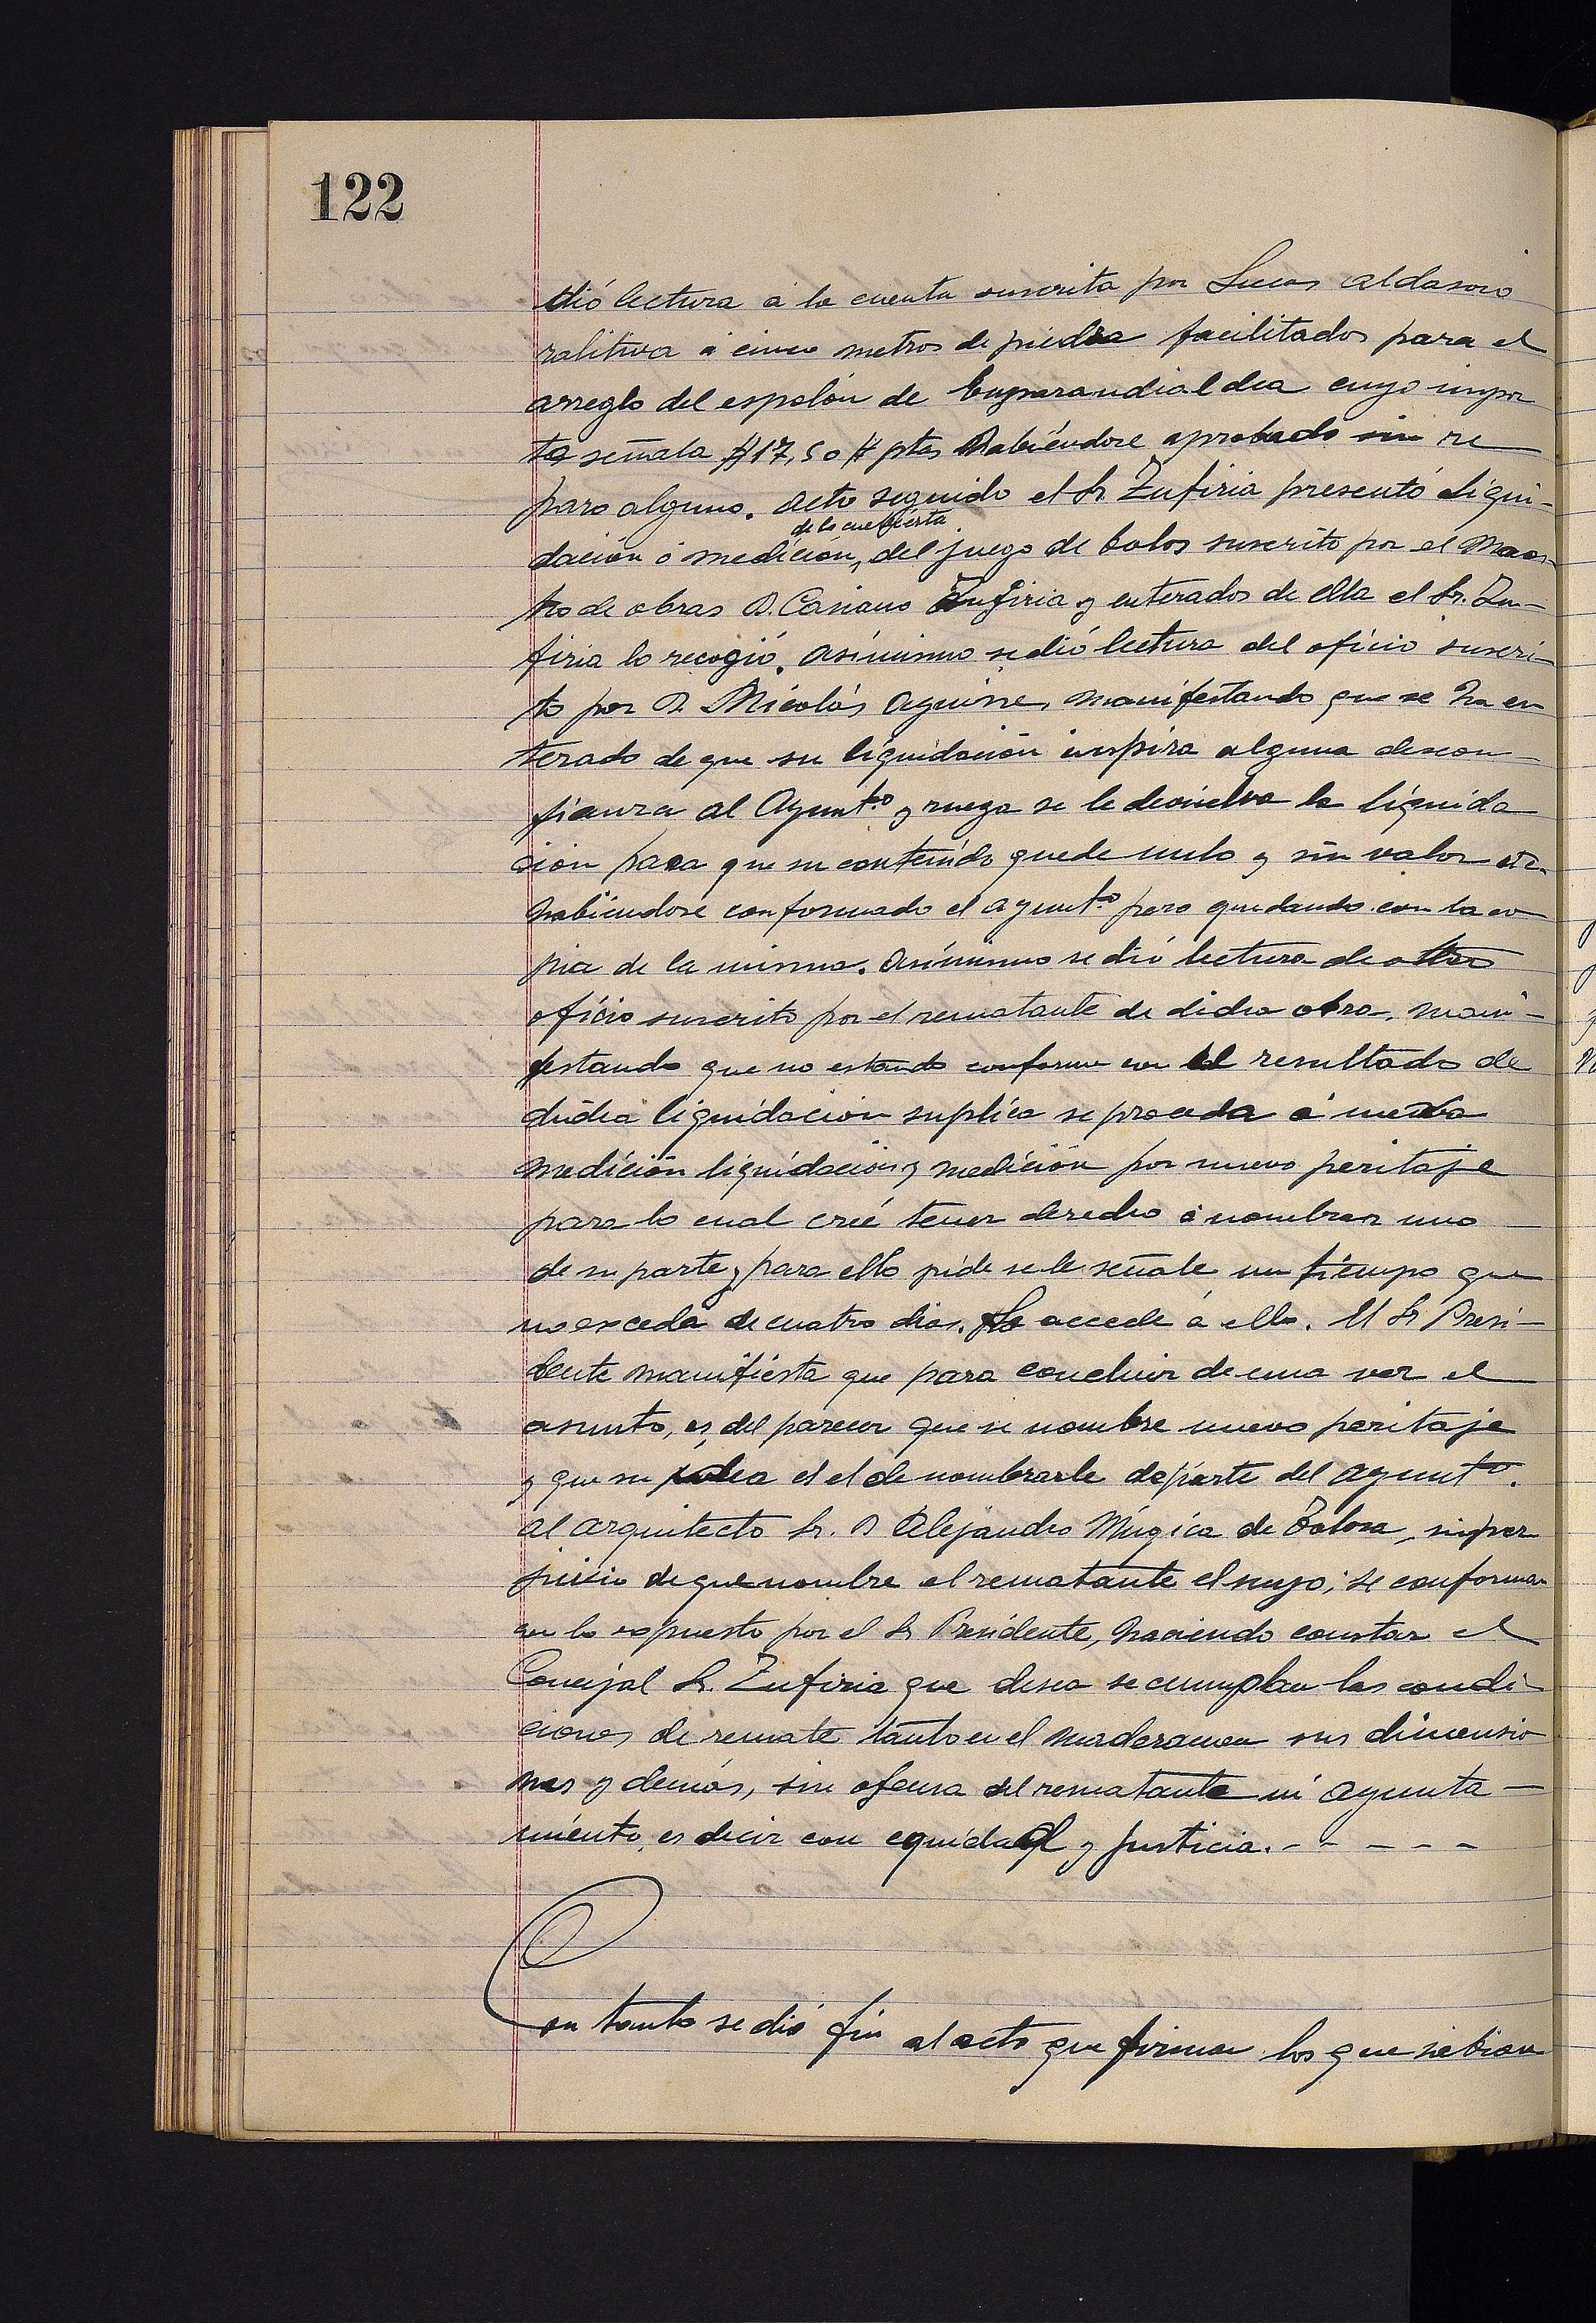 122
dió lectura á la cuenta suscrita por Lucas Aldasoro
ralitiva á cinco metros de piedra facilitados para el
arreglo del espolón de Enparandialdea cuyo impor
te señala #17,50# ptas habiéndose aprobado sin re
paro alguno. Acto seguido el Sr Zufiria presentó liqui-
de la cubierta
dación ó medición, del juego de bolos suscrito por el Maes
tro de obras D. Casiano Zufiria y enterados de ella el Sr. Zu-
firia lo recogió. Asimismo se dió lectura del oficio suscri-
to por D. Nicolás Aguirre, manifestando que se ha en
terado de que su liquidación inspira alguna descon-
fianza al Ayunt.º y ruega se le devuelva la liquida
ción para que su contenido quede nulo y sin valor etc.
habiendose conformado el Ayunt.º pero quedando con la co
pia de la misma. Asimismo se dió lectura de otro
oficio suscrito por el rematante de dicha obra, mani-
festando que no estando conforme con el resultado de
dicha liquidación suplica se proceda á nueva
medición liquidación y medición por nuevo peritaje
para lo cual creé tener derecho á nombrar uno
de su parte y para ello pide se le señale un tiempo que
no exceda de cuatro dias. Se accede á ello. El Sr Presi-
dente manifiesta que para concluir de una vez el
asunto, es del parecer que se nombre nuevo peritaje
y que su idea es el de nombrarle de parte del Ayunt.º
al arquitecto Sr. D Alejandro Múgica de Tolosa, sin per
juicio de que nombre el rematante el suyo; se conforman
con lo expuesto por el Sr Presidente, haciendo constar el
Concejal Sr. Zufiria que desea se cumplan las condi-
ciones de remate tanto en el maderamen sus dimensio
nes y demás, sin ofensa del rematante ni ayunta-
miento, es decir con equidad y justicia. - - - - -
En tanto se dió fin al acto que firman los que sabian